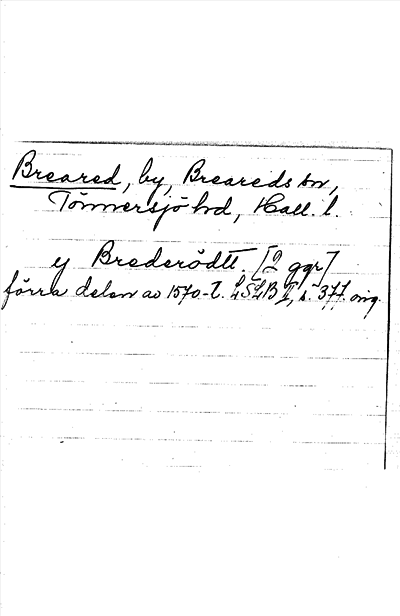 Breared, by, Breareds sn,
Tönnersjö hd, Hall. l.
ij Brederödtt. [2 ggr]
förra delen av 1570-t. LSLB I, s. 377. orig.